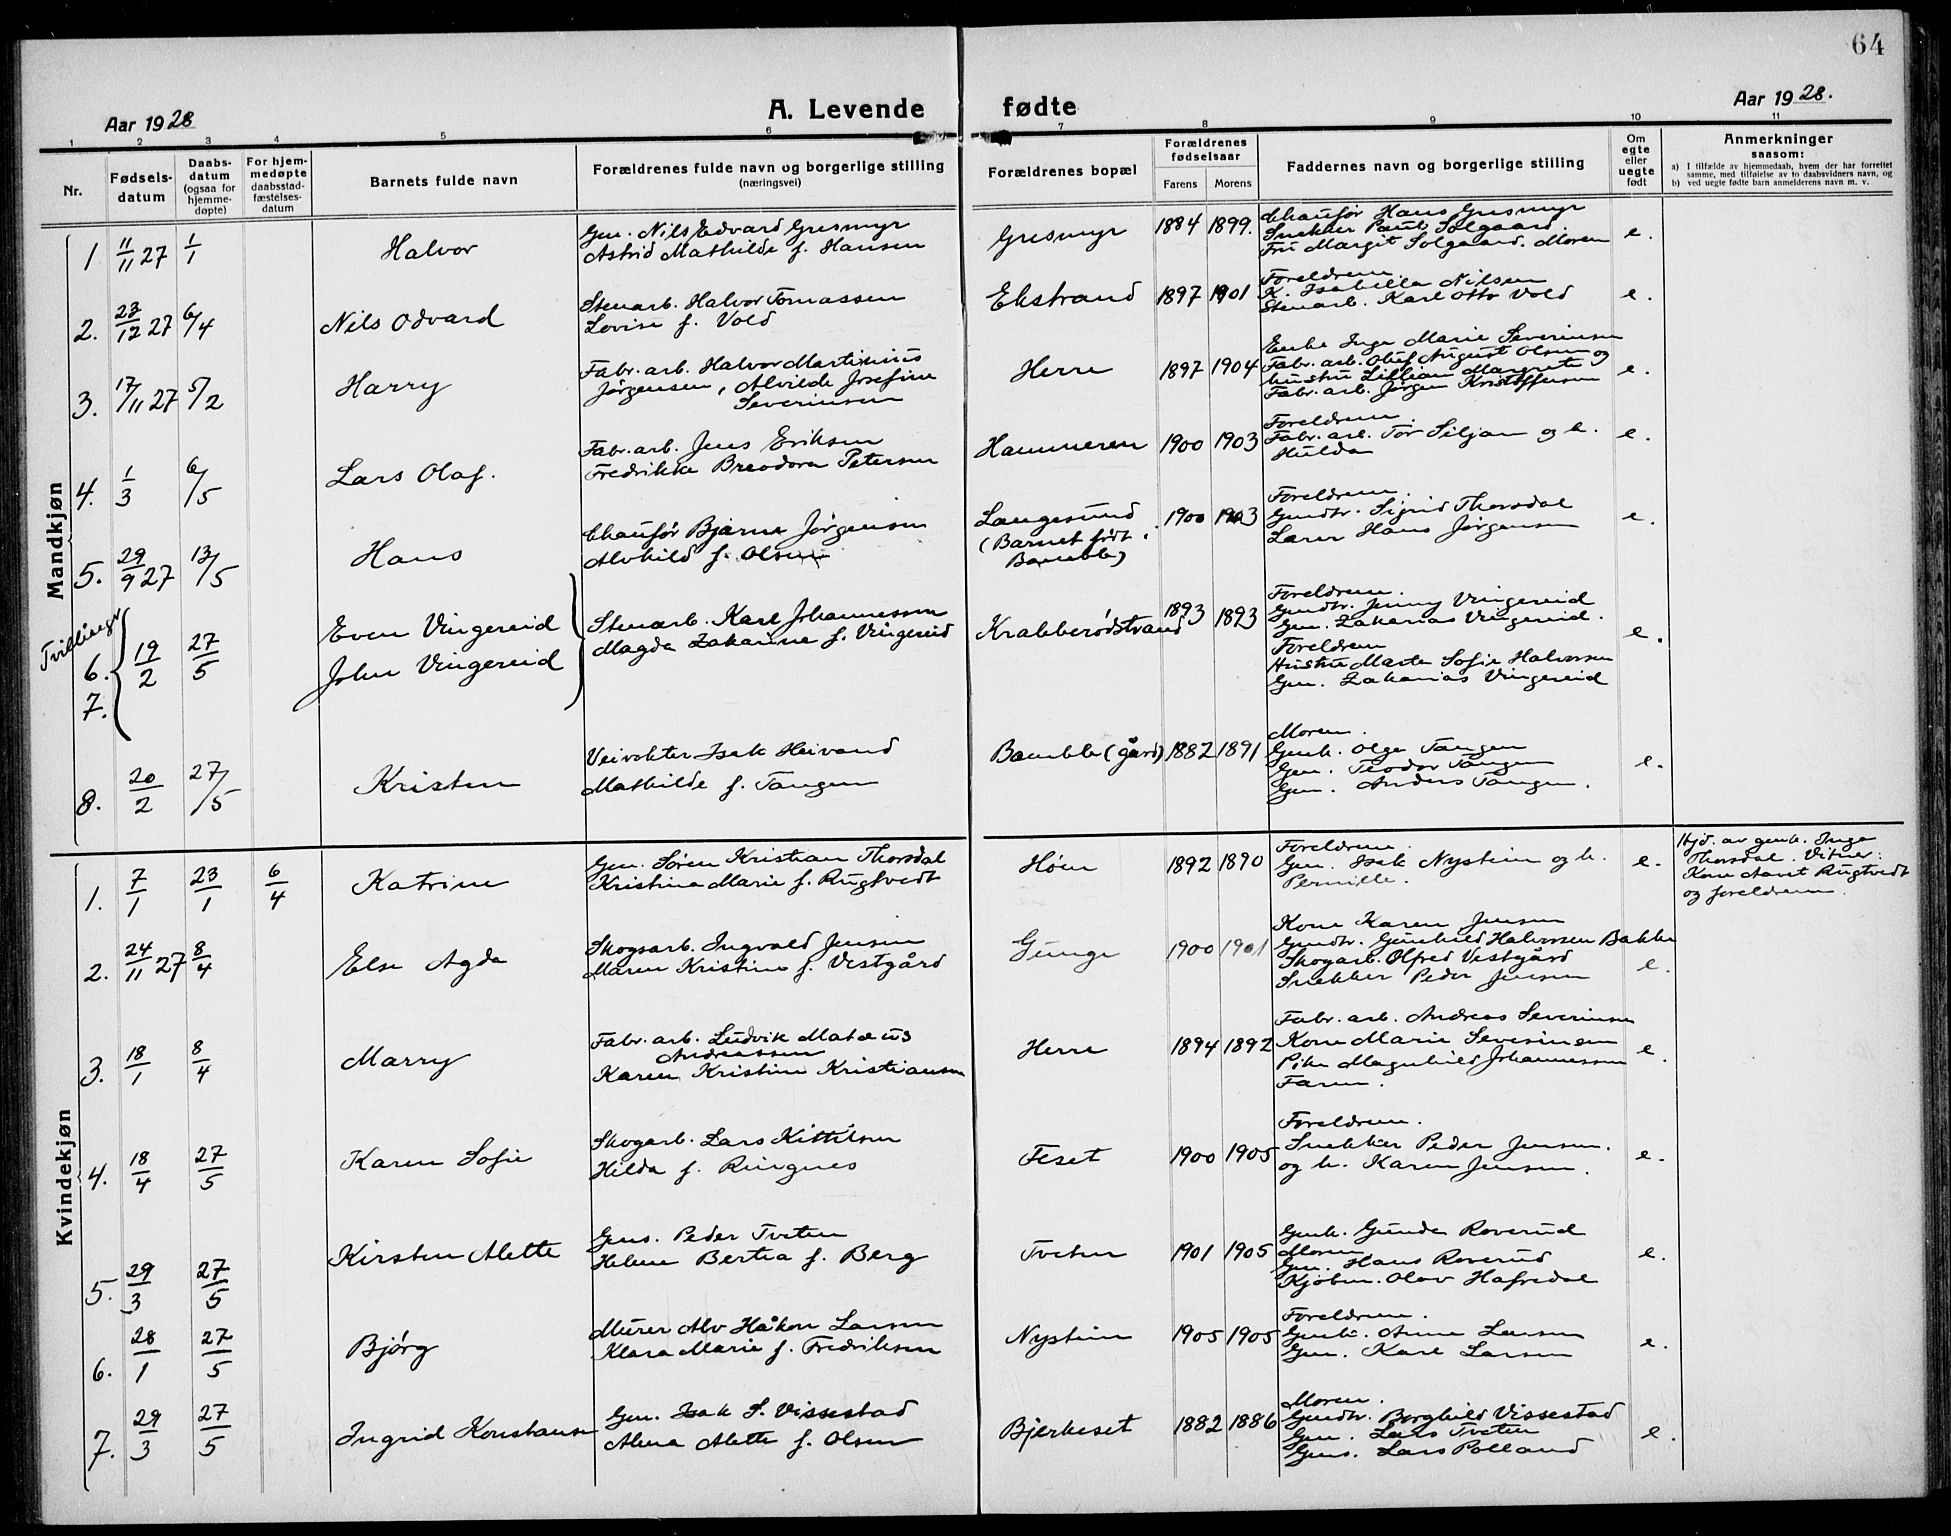 64
Aar 1928
A. Levende fødte
Aar 1928.
1 2 3 4 5 6 7 8 9 10 11
Nr.
Fødsels-
datum
Daabs-
datum
(ogsaa for
hjemme-
døpte)
For hjem-
medøpte
daabsstad-
fæstelses-
datum
Barnets fulde navn
Forældrenes fulde navn og borgerlige stilling
(næringsvei)
Forældrenes bopæl
Forældrenes
fødselsaar
Farens Morens
Faddernes navn og borgerlige stilling
Om
egte
eller
uegte
født
Anmerkninger
saasom:
a) I tilfælde av hjemmedaab, hvem der har forrettet
samme, med tilføielse av to daabsvidners navn, og
b) ved uegte fødte barn anmelderens navn m. v.
Mandkjøn
1 11/11 27 1/1
Halvor
Gm. Nils Edvard Gresmyr
Astrid Mathilde f. Hansen
Gresmyr
1884 1899.
Chaufør Hans Gresmyr
Snekker Paul Solgaard.
Fru Margit Solgaard. Moren
e.
2. 23/12 27 6/4
Nils Odvard
Stenarb. Halvor Tomassen
Lovise f. Vold
Ekstrand
1897 1901
Foreldrene.
K. Isabella Nilsen
Stenarb. Karl Otto Vold
e.
3. 17/11 27 5/2
Harry
Fabr. arb. Halvor Martinius
Jørgensen, Alvilde Josefine
Severinsen
Herre
1897 1904
Enke Inga Marie Severinsen
Fabr. arb. Oluf August Olsen og
hustru Lillian Margrete
Fabr. arb. Jørgen Kristoffersen
e.
4. 1/3 6/5
Lars Olaf.
Fabr. arb. Jens Eriksen
Fredrikke Breodora Petersen
Hammeren
1900 1903
Foreldrene.
Fabr. arb. Tor Siljan og h.
Hulda
e.
5. 29/9 27 13/5
Hans
Chaufør Bjarne Jørgensen
Alvhild f. Olsen
Langesund
(Barnet født i
Bamble)
1900 1903
Foreldrene.
Gmdtr. Sigrid Thorsdal
Lærer Hans Jørgensen
e.
Tvillinger
6. 19/2 27/5
7.
Even Vingereid
John Vingereid
Stenarb. Karl Johannessen
Magda Zakarine f. Vingereid
Krabberødstrand
1893 1893
Foreldrene.
Gmdtr. Jenny Vingereid
Gm. Zakarias Vingereid.
Foreldrene
Hustru Marte Sofie Halvorsen
Gm. Zakarias Vingereid
e.
8. 20/2 27/5
Kristen
Veivokter Isak Heivand
Mathilde f. Tangen
Bamble (gård)
1882 1891
Moren.
Gmk. Olga Tangen
Gm. Teodor Tangen
Gm. Anders Tangen.
e.
Kvindekjøn
1. 7/1 23/1 6/4
Katrine
Gm. Søren Kristian Thorsdal
Kristina Marie f. Rugtvedt
Høen
1892 1890
Foreldrene.
Gm. Isak Nystein og h.
Pernille.
e.
Hjd. av gmk. Inga
Thorsdal. Vitner:
Kone Aaret Rugtvedt
og foreldrene.
2. 24/11 27 8/4
Else Agda
Skogsarb. Ingvald Jensen
Maren Kristine f. Vestgård
Gunge
1900 1901
Kone Karen Jensen
Gmdtr. Gunhild Halvorsen Bakke
Skogarb. Olfred Vestgård
Snekker Peder Jensen
e.
3. 18/1 8/4
Marry
Fabr. arb. Ludvik Matæus
Andreassen
Karen Kristine Kristiansen
Herre
1894 1892
Fabr. arb. Andreas Severinsen
Kone Marie Severinsen
Pike Magnhild Johannessen
Faren.
e.
4. 18/4 27/5
Karen Sofie
Skogarb. Lars Kittilsen
Hilda f. Ringnes
Feset
1900 1905
Foreldrene.
Snekker Peder Jensen.
og h. Karen Jensen.
e.
5. 29/3 27/5
Kirsten Alette
Gms. Peder Tveten
Helene Bertea f. Berg
Tveten
1901 1905
Gmk. Gunda Roverud
Moren
Gm. Hans Roverud
Kjøbm. Olav Hafredal
e.
6. 28/1 27/5
Bjørg
Murer Alv Håkon Larsen
Klara Marie f. Fredriksen
Nystein
1905 1905
Foreldrene.
Gmk. Anne Larsen
Gm. Karl Larsen
e.
7. 29/3 27/5
Ingrid Konstanse
Gm. Isak S. Vissestad
Alma Alette f. Olsen
Bjerkeset
1882 1886
Moren.
Gmdtr. Borghild Vissestad
Gm. Lars Tveten
Gms. Lars Polland
e.